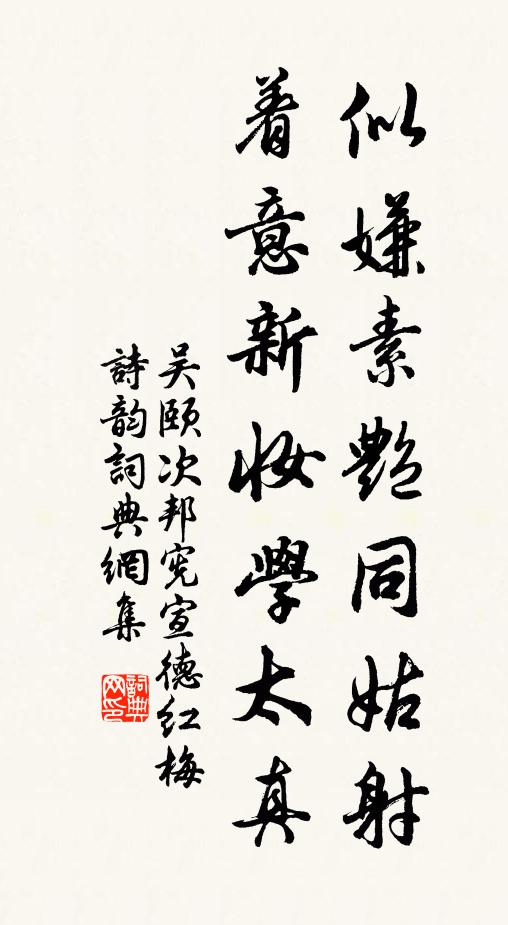 似嫌素艷同姑射
着意新妝學太真
吴頤次邦憲宣德红梅
詩韵詞典網集
詞典网印